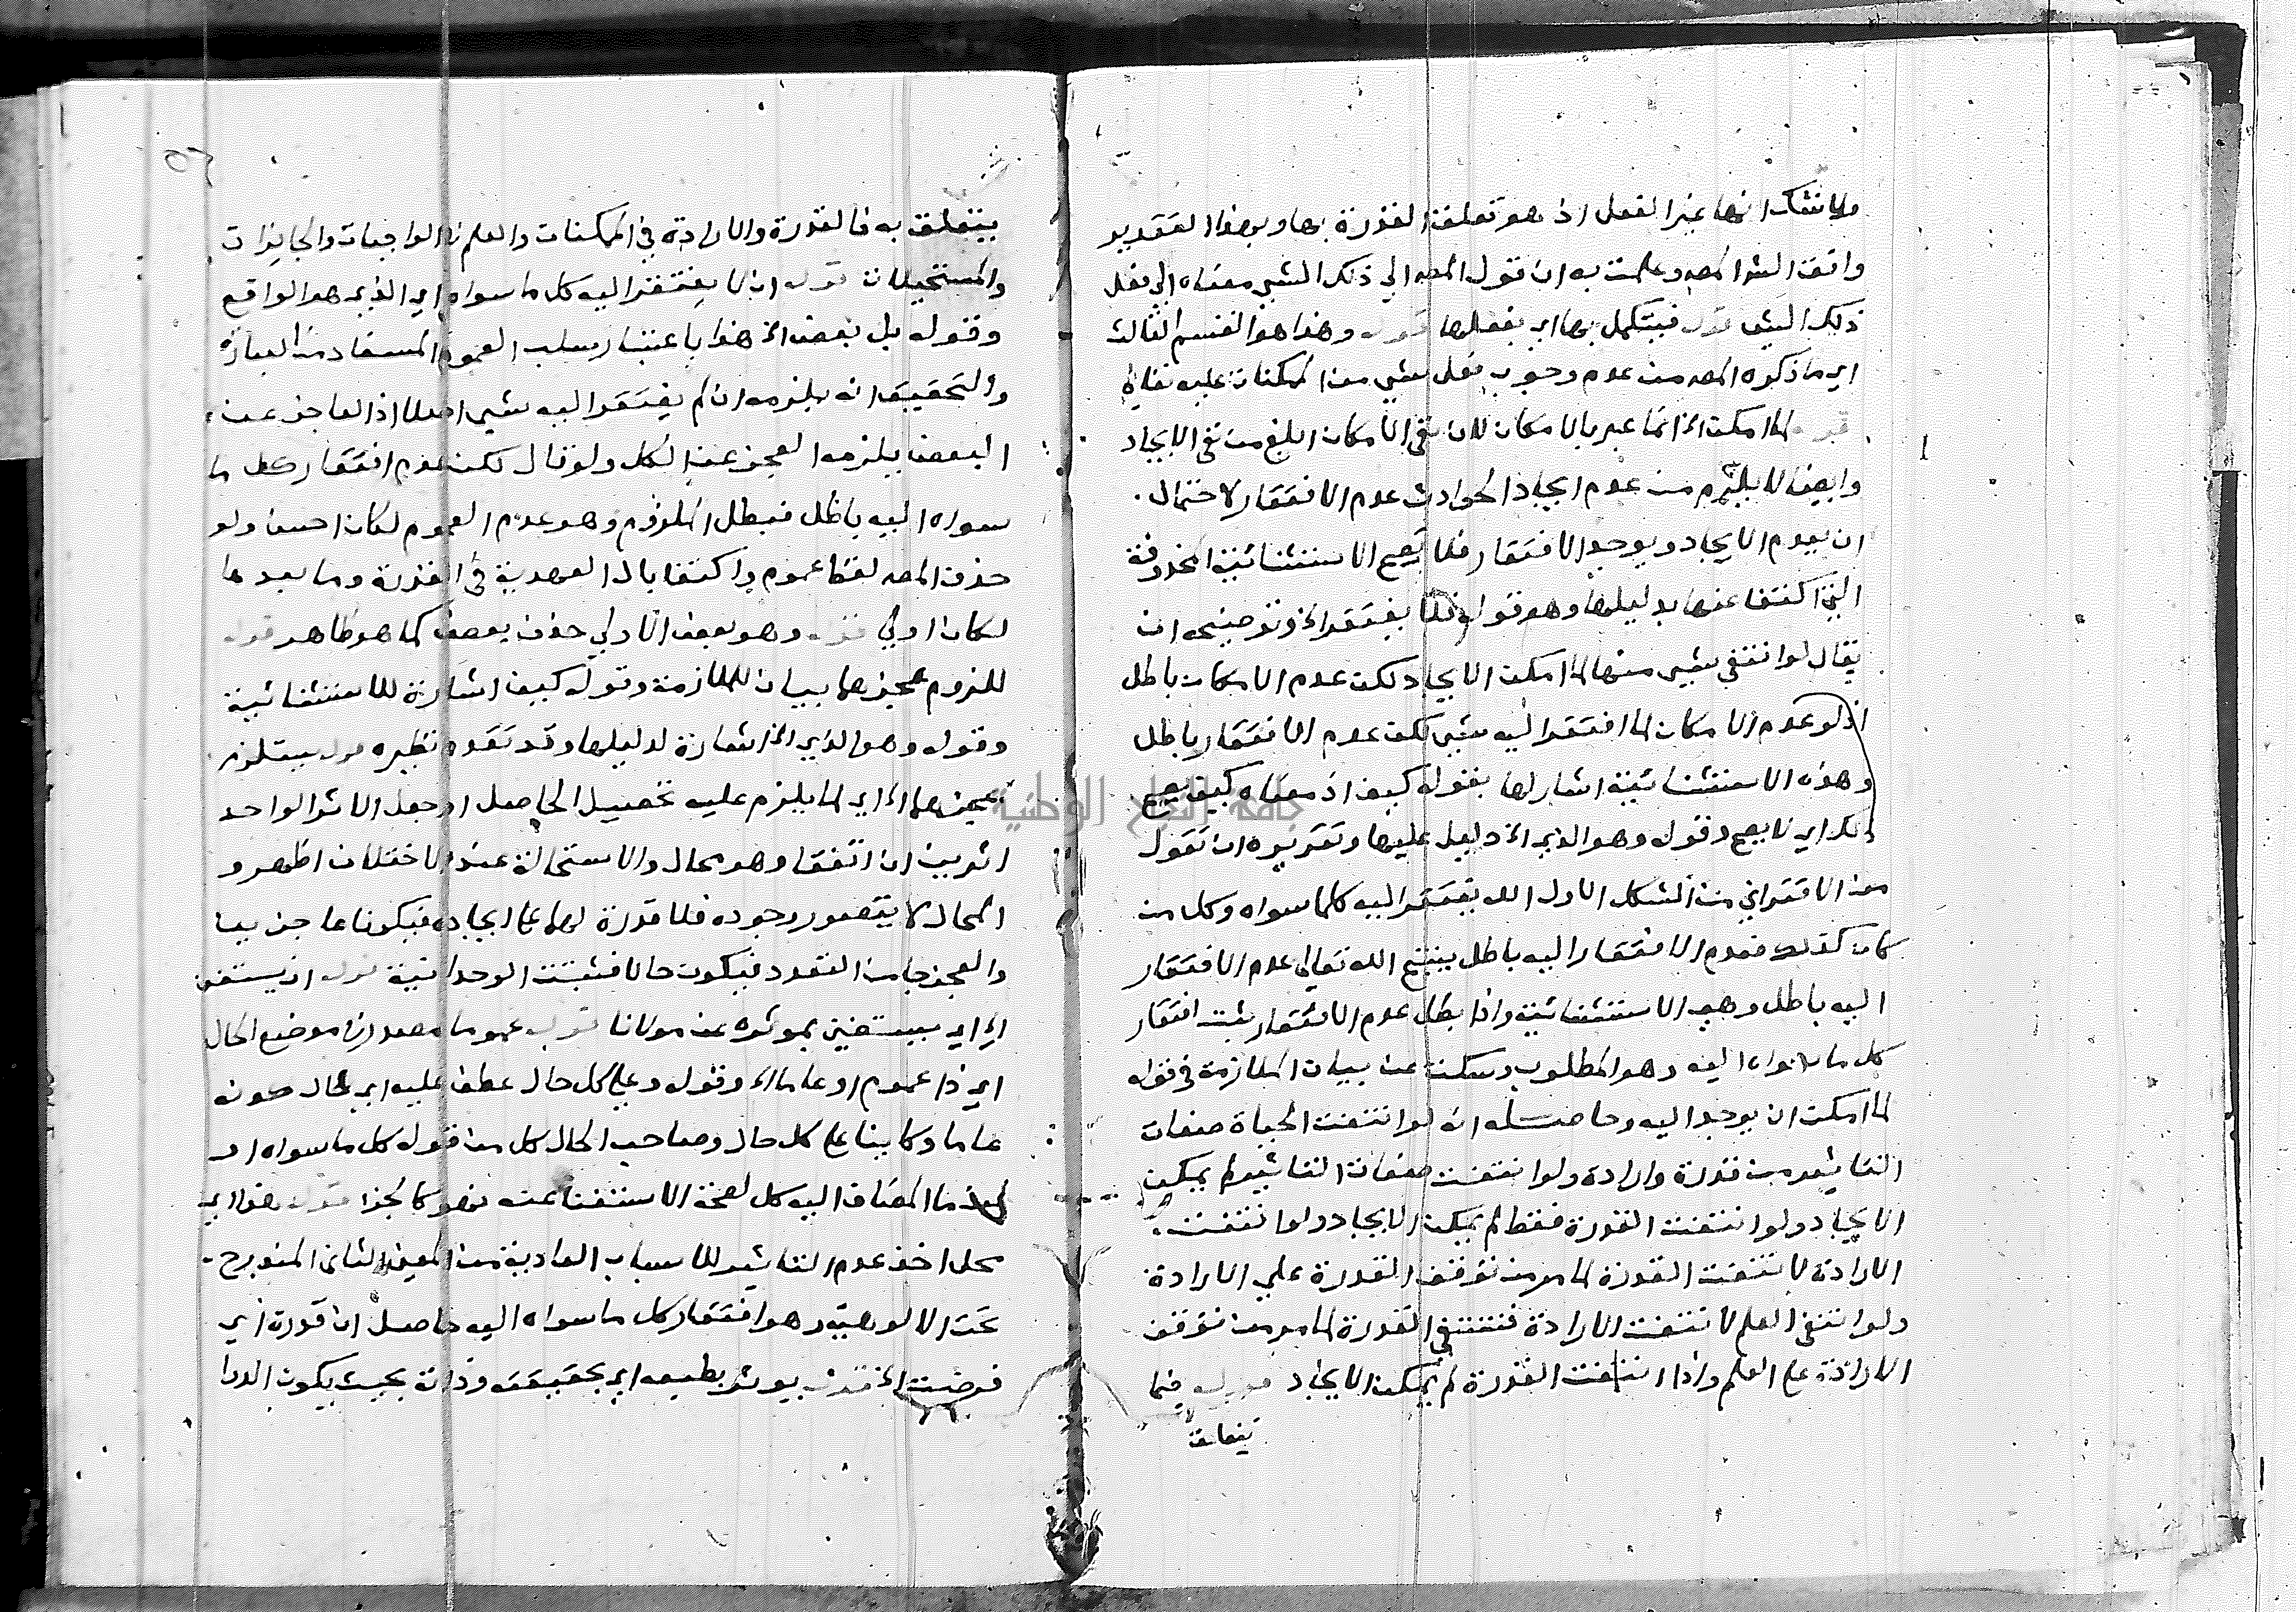 ولا شك انها غير الفعل اذ هو تعلق القدرة بها وبهذا التقدير
وافق الش المص وعلمت به ان قول المص الي ذلك الشي معناه الي فعل
ذلك الشي قوله فيتكمل بها اي بفعلها قوله وهذا هو القسم الثالث
اي ما ذكره المص من عدم وجوب فعل شي من الممكنات عليه تعالي
قوله لما امكن الخ انما عبر بالامكان لان نفي الامكان ابلغ من نفي الايجاد
وايضا لا يلزم من عدم ايجاد الحوادث عدم الافتقار لاحتمال
ان يعدم الايجاد ويوجد الافتقار فلا يصح الاستثنائية المحذوفة
التي اكتفا عنها بدليلها وهو قوله فلا يفتقر الخ وتوضيحه ان
يقال لو انتفي شي منها لما امكن الايجاد لكن عدم الامكان باطل
اذ لو عدم الامكان لما افتقر اليه شي لكن عدم الافتقار باطل
وهذه الاستثنائية اشار لها بقوله كيف اذ معناه كيف يصح
ذلك اي لا يصح وقوله وهو الذي الخ دليل عليها وتقريره ان تقول
من الاقتراني من الشكل الاول الله يفتقر اليه كلما سواه وكل من
كان كذلك فعدم الافتقار اليه باطل ينتج الله تعالي عدم الافتقار
اليه باطل وهي الاستثنائية واذا بطل عدم الافتقار ثبت افتقار
كل ما سواه اليه وهو المطلوب وسكت عن بيان الملازمة في قوله
لما امكن ان يوجد اليه وحاصله انه لو انتفت الحياة صفات
التاثير من قدرة وارادة ولو انتفت صفات التاثير لم يمكن
الايجاد ولو انتفت القدرة فقط لم يمكن الايجاد ولو انتفت
الارادة لانتفت القدرة لما مر من توقف القدرة علي الارادة
ولو انتفي العلم لانتفت الارادة فتنتفي القدرة لما مر من توقف
الارادة علي العلم واذا انتفت القدرة لم يمكن الايجاد قوله فيما
يتعلق
يتعلق به فالقدرة والارادة في الممكنات والعلم في الواجبات والجايزات
والمستحيلات قوله ان لا يفتقر اليه كل ما سواه اي الذي هو الواقع
وقوله بل بعض الخ هذا باعتبار سلب العموم المستفاد من العبارة
والتحقيق انه يلزمه ان لم يفتقر اليه شي اصلا اذ العاجز عن
البعض يلزمه العجز عن الكل ولو قال لكن عدم افتقار كل ما
سواه اليه باطل فبطل الملزوم وهو عدم العموم لكان احسن ولو
حذف المص لفظ عموم واكتفا بال العهدية في القدرة وما بعدها
لكان اولي قوله وهو بعض الاولي حذف بعض كما هو ظاهر قوله
للزوم عجزهما بيان للملازمة وقوله كيف اشارة للاستثنائية
وقوله وهو الذي الخ اشارة لدليلها وقد تقدم نظيره قوله يستلزم
عجزهما الخ اي لما يلزم عليه تحصيل الحاصل او جعل الاثر الواحد
اثرين ان اتفقا وهو محال والاستحالة عند الاختلاف اظهر و
المحال لا يتصور وجوده فلا قدرة لهما علي ايجاده فيكونا عاجزين
والعجز جا من التعدد فيكون محالا فثبتت الوحدانية قوله ان يستغني
الخ اي يستغني بموثره عن مولانا قوله عموما مصدر في موضع الحال
اي ذا عموم او عاما الخ وقوله وعلي كل حال عطف عليه اي حال كونه
عاما وكاينا علي كل حال وصاحب الحال كل من قوله كل ما سواه او
لفظ ما المضاف اليه كل لصحة الاستغنا عنه فهو كالجزء قوله هذا اي
محل اخذ عدم التاثير للاسباب العادية من المعنى الثاني المندرج
تحت الالوهية وهو افتقار كل ما سواه اليه حاصل ان قدرة اي
فرضت الخ قوله يوثر بطبعه اي بحقيقته وذاته بحيث يكون الله
جامعة النجاح الوطنية